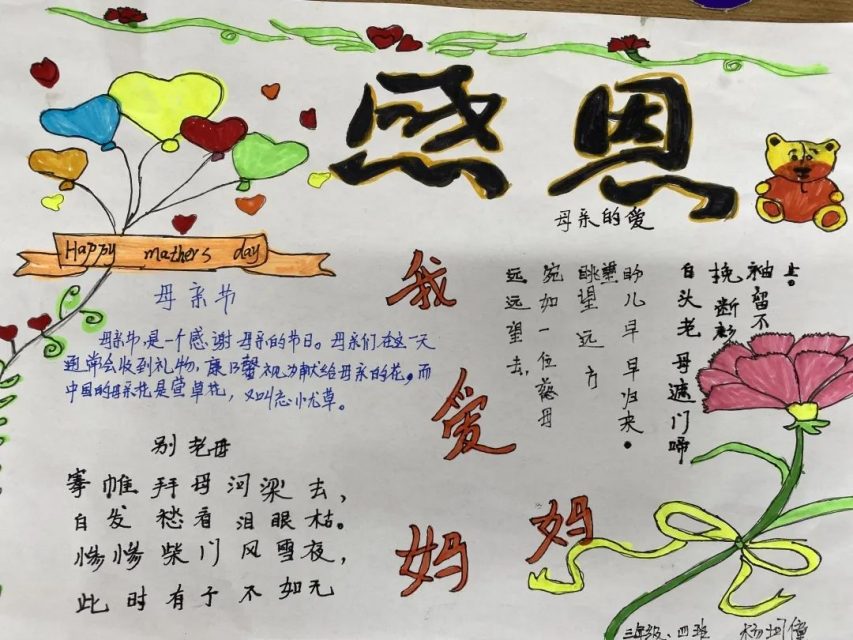 感恩
Happy mathers day
母亲节
母亲节是一个感谢母亲的节日。母亲们在这一天
通常会收到礼物，康乃馨视为献给母亲的花，而
中国的母亲花是萱草花，又叫忘忧草。
别老母
搴帷拜母河梁去，
白发愁看泪眼枯。
惨惨柴门风雪夜，
此时有子不如无
我
爱
妈
妈
母亲的爱
上。
袖留不
挽断衫
白头老母遮门啼
盼儿早早归来。
眺望远方
宛如一位慈母
远远望去，
三年级、四班